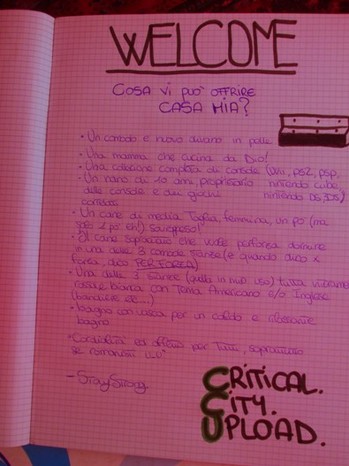 WELCOME
COSA VI PUO' OFFRIRE
CASA MIA?
• Un comodo e nuovo divano in pelle
• Una mamma che cucina da Dio!
• Una collezione completa di console (Wii, ps2, psp,
nintendo cube
nintendo DS, 3DS)
• Un nano di 10 anni, proprietario
delle console e dei giochi
• Un cane di media Taglia, femmina, un po' (ma
solo 1 po' eh!)
• Il cane sopracitato che vuole per forza dormire
in una delle 3 comode stanze (e quando dico x
forza, dico PER FORZA)
• Una delle 3 stanze (quella in mio uso) tutta
rossa e bianca con Tema Americano e/o Inglese
(bandiere etc...)
• bagno con vasca per un caldo e rilassante
bagno
• Cordialità ed affetto per Tutti, sopratutto
se romanisti
- StayStrong
CRITICAL.
CITY.
UPLOAD.